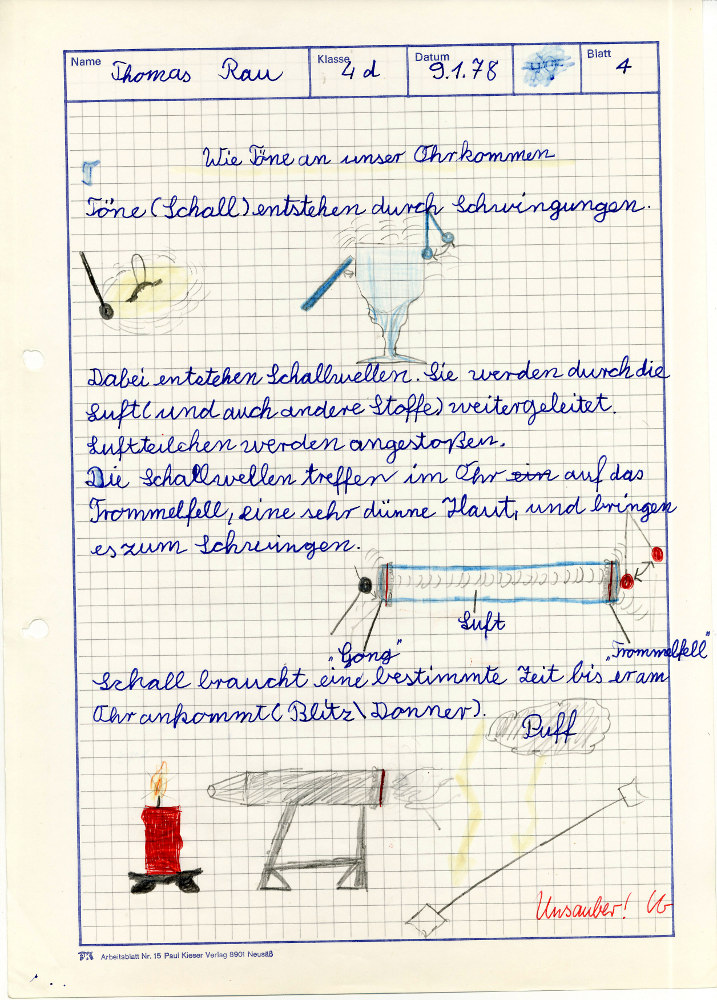 Name Thomas Rau Klasse 4d Datum 9.1.78 Blatt 4
Wie Töne an unser Ohr kommen
T
Töne (Schall) entstehen durch Schwingungen.
Dabei entstehen Schallwellen. Sie werden durch die
Luft (und auch andere Stoffe) weitergeleitet.
Luftteilchen werden angestoßen.
Die Schallwellen treffen im Ohr ein auf das
Trommelfell, eine sehr dünne Haut, und bringen
es zum Schwingen.
Luft
"Gong"
"Trommelfell"
Schall braucht eine bestimmte Zeit bis er am
Ohr ankommt (Blitz\Donner).
Puff
Unsauber!
Arbeitsblatt Nr. 15 Paul Kieser Verlag 8901 Neusäß